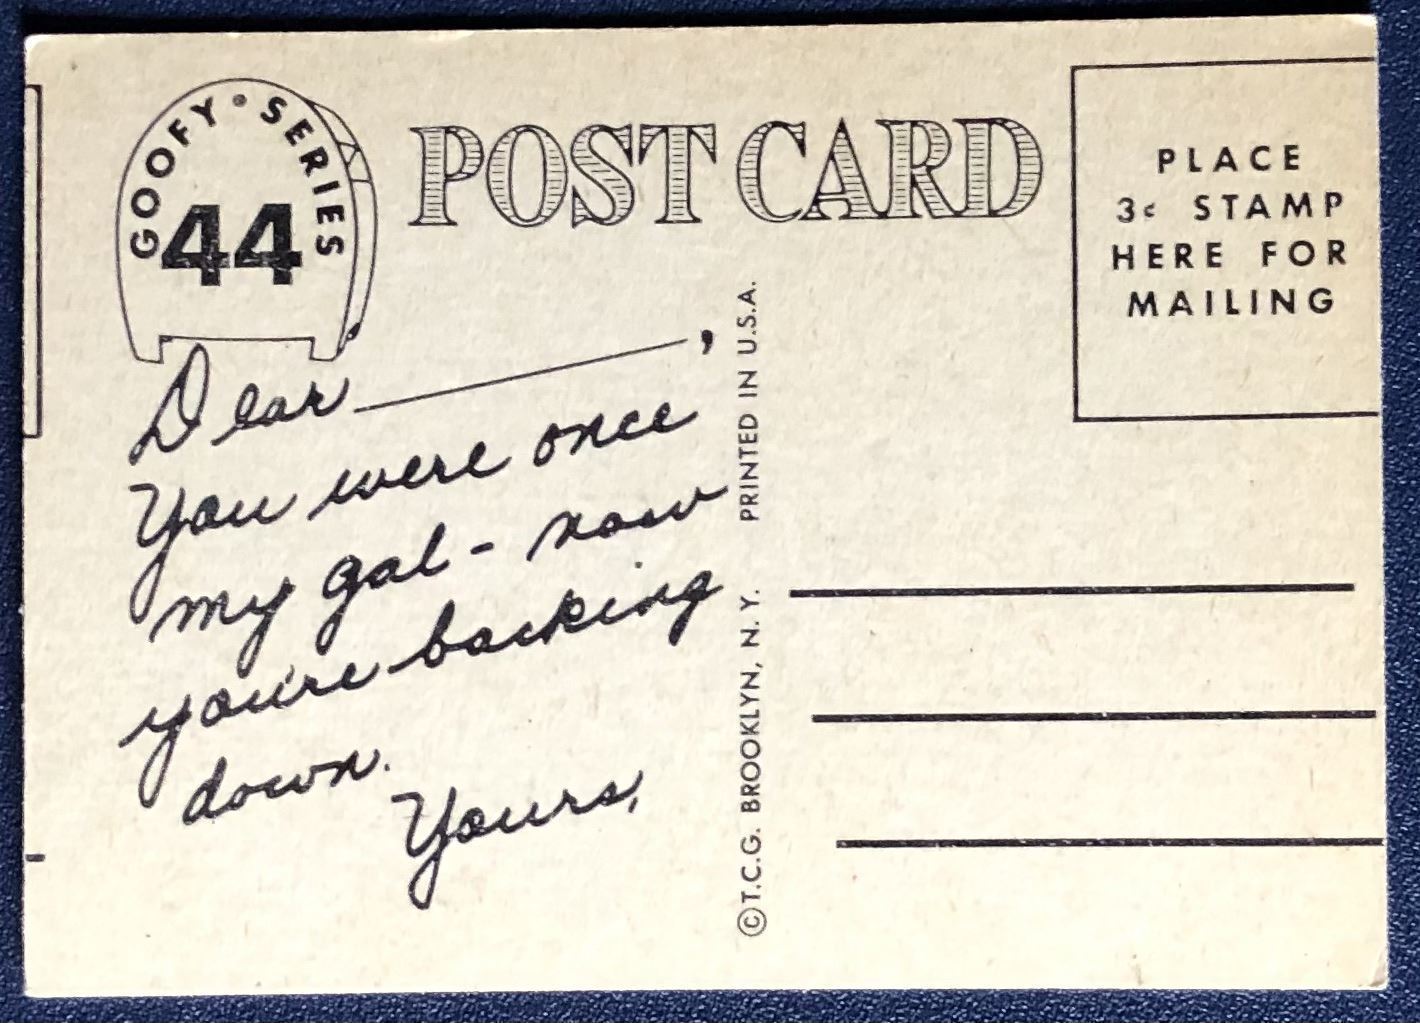 GOOFY • SERIES
44
POST CARD
PLACE
3¢ STAMP
HERE FOR
MAILING
Dear ________,
You were once
my gal - now
you're backing
down.
Yours,
©T.C.G. BROOKLYN, N.Y. PRINTED IN U.S.A.